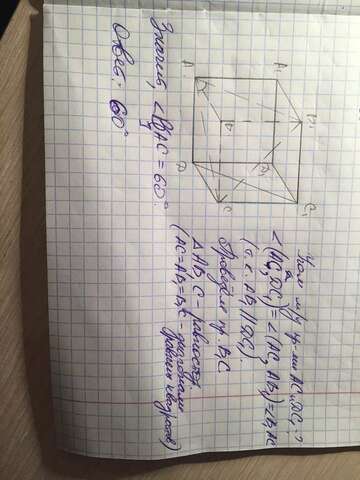 A
A₁
B
B₁
D
D₁
C
C₁
Угол м/у пр-ми AC и DC₁ - ?
∠(AC, DC₁) = ∠(AC, AB₁) = ∠B₁AC
(т.к. AB₁ || DC₁).
Проведём пр. B₁C
△AB₁C - равностор.
(AC = AB₁ = B₁C - диагонали
равных квадратов)
Значит, ∠B₁AC = 60°.
Ответ: 60°